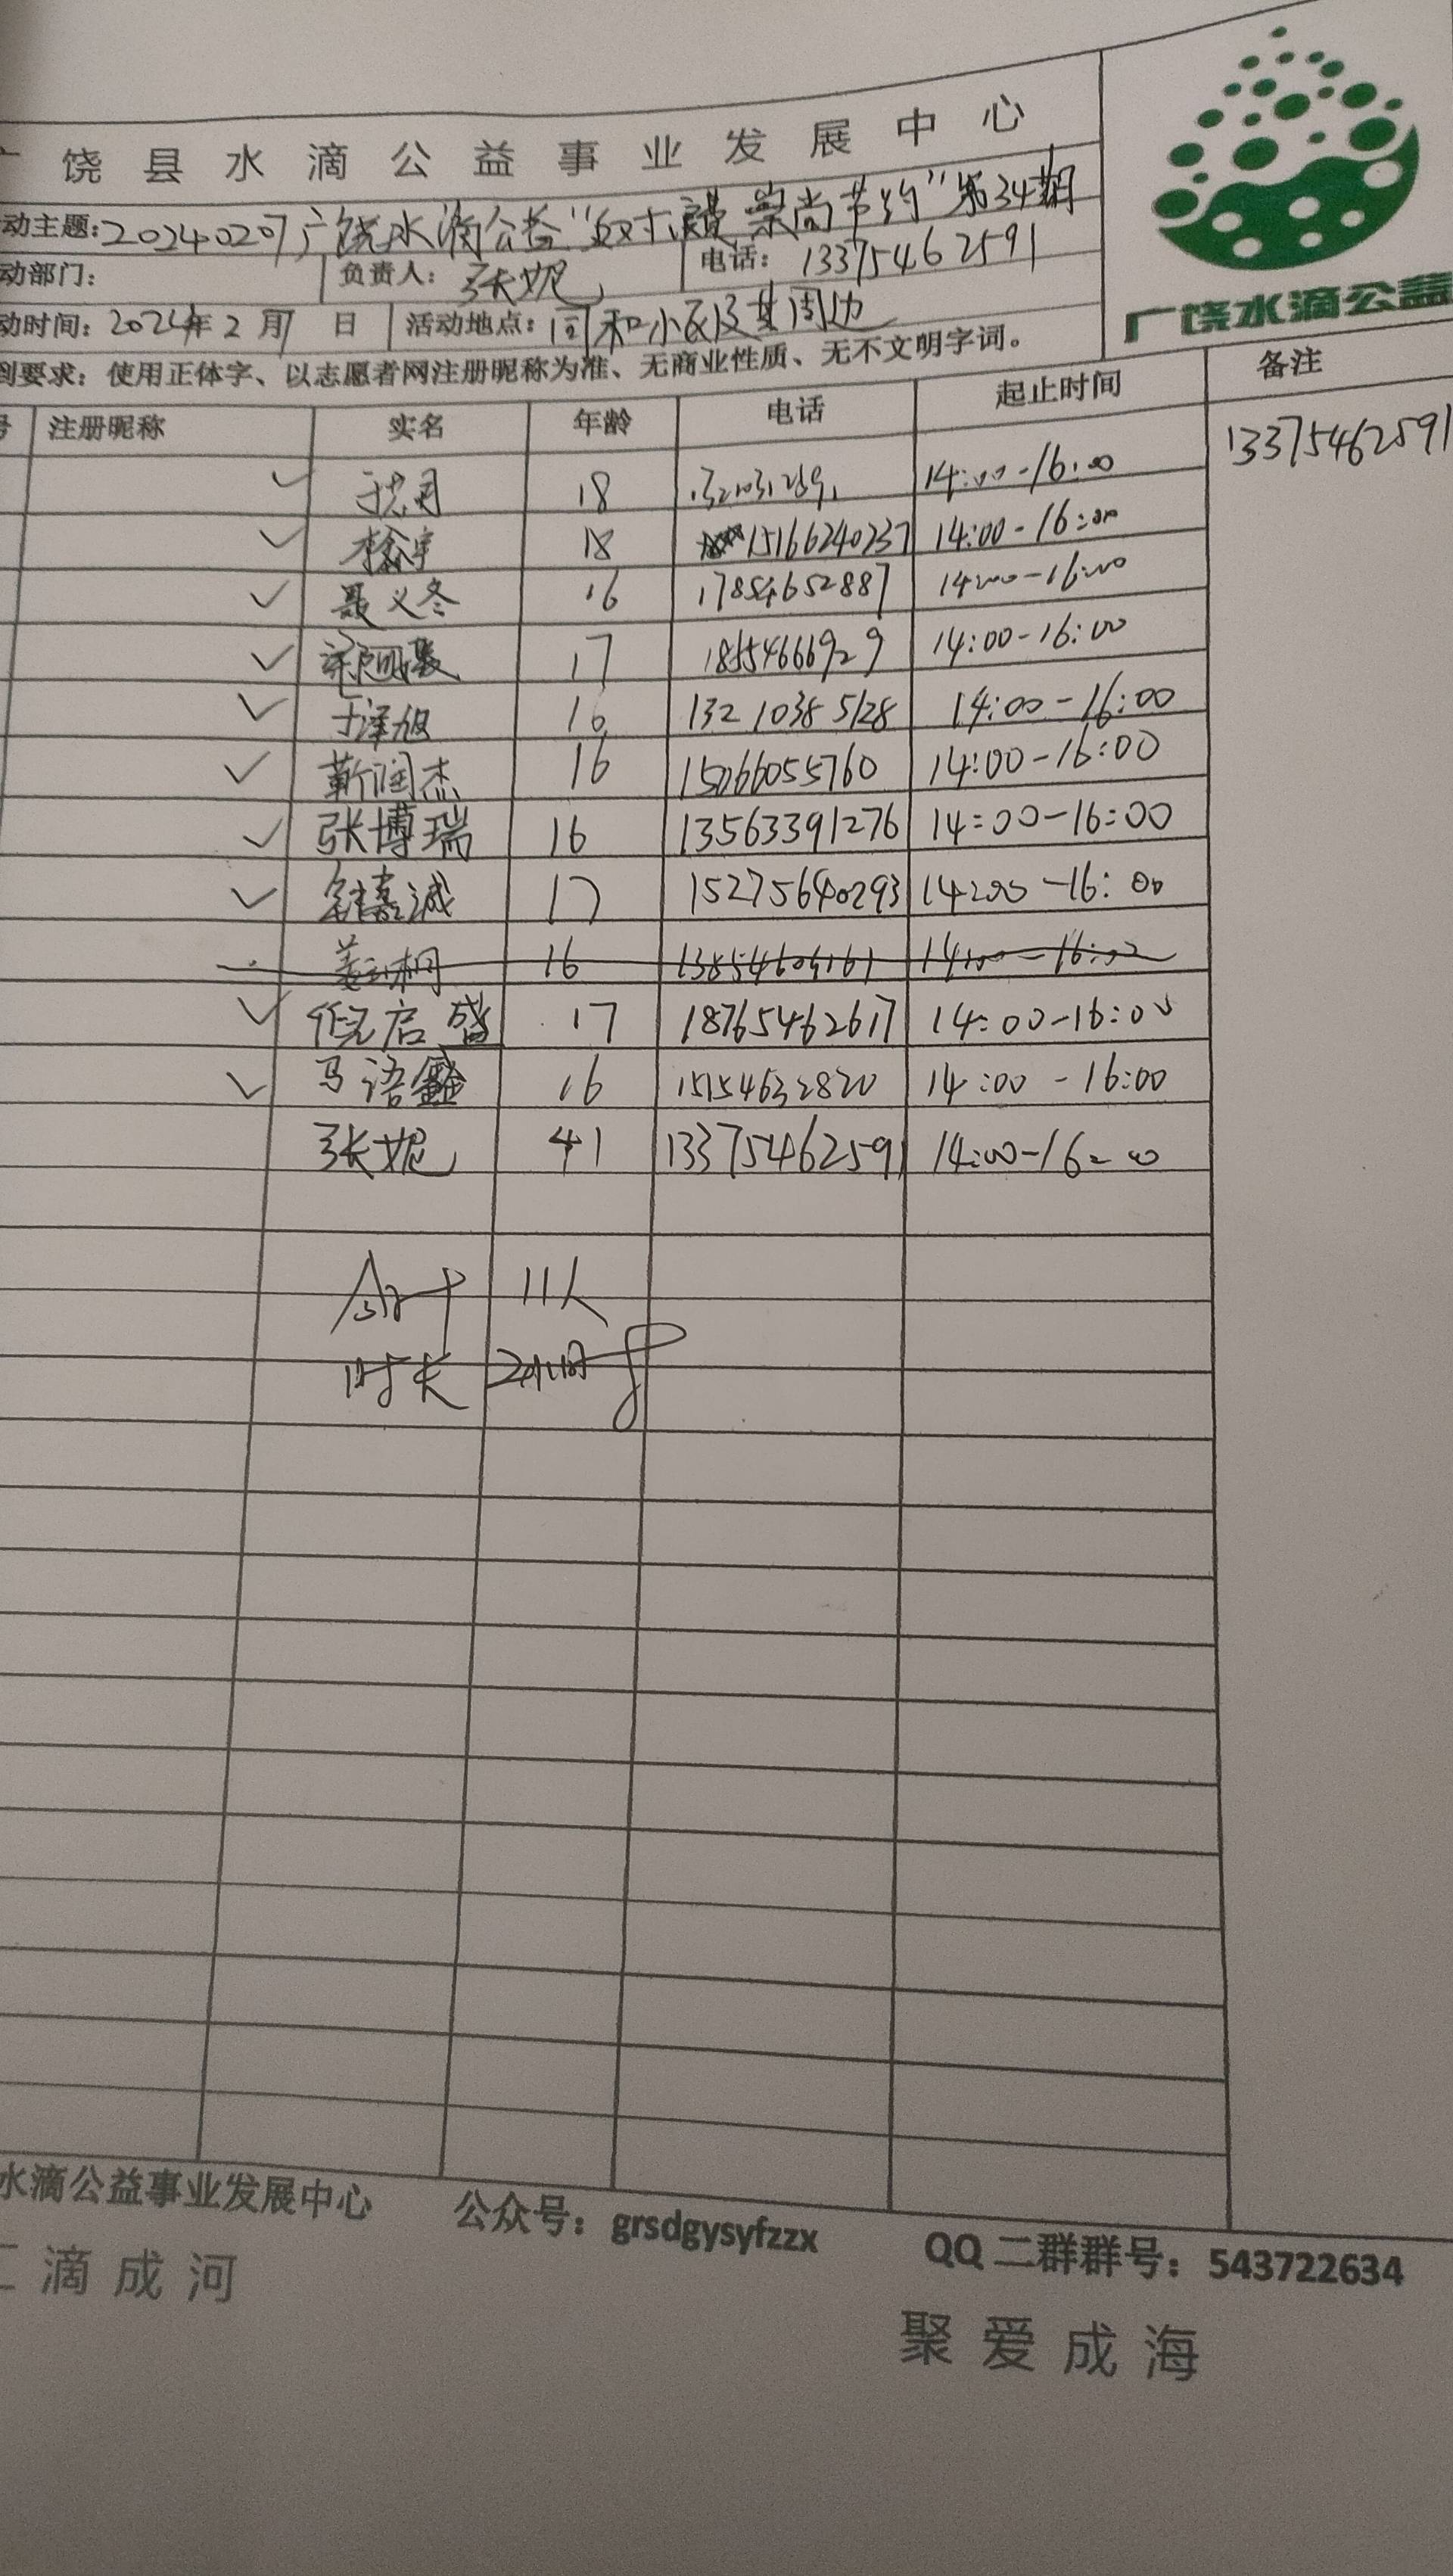 饶县水滴公益事业发展中心
动主题:20240207广饶水滴公益"反对浪费 崇尚节约"第34期
动部门: 负责人: 张妮 电话: 13375462591
动时间: 2024年2月7日 活动地点: 同和小区及其周边
到要求: 使用正体字、以志愿者网注册昵称为准、无商业性质、无不文明字词。
广饶水滴公益
号 注册昵称 实名 年龄 电话 起止时间 备注
18 14:00-16:00 13375462591
18 15166240237 14:00-16:00
聂义冬 16 17854652887 14:00-16:00
17 18554666929 14:00-16:00
于泽旭 16 13210385128 14:00-16:00
靳润杰 16 15066055760 14:00-16:00
张博瑞 16 13563391276 14:00-16:00
17 15275640293 14:00-16:00
16 14:00-16:00
倪启盛 17 18765462617 14:00-16:00
马语鑫 16 15154632820 14:00-16:00
张妮 41 13375462591 14:00-16:00
合计 11人
时长 2小时
水滴公益事业发展中心 公众号: grsdgysyfzzx QQ 二群群号: 543722634
汇滴成河
聚爱成海